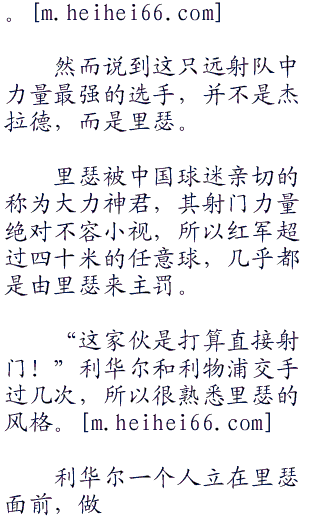 。[m.heihei66.com]
然而说到这只远射队中
力量最强的选手，并不是杰
拉德，而是里瑟。
里瑟被中国球迷亲切的
称为大力神君，其射门力量
绝对不容小视，所以红军超
过四十米的任意球，几乎都
是由里瑟来主罚。
“这家伙是打算直接射
门！”利华尔和利物浦交手
过几次，所以很熟悉里瑟的
风格。[m.heihei66.com]
利华尔一个人立在里瑟
面前，做